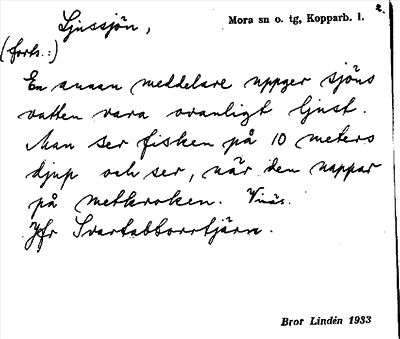 Ljussjön,
Mora sn o. tg, Kopparb. l.
2.
(forts.:)
En annan meddelare uppger sjöns
vatten vara ovanligt ljust.
Man ser fisken på 10 meters
djup och ser, när den nappar
på metkroken. Vinäs.
Jfr Svartabborrtjärn.
Bror Lindén 1933